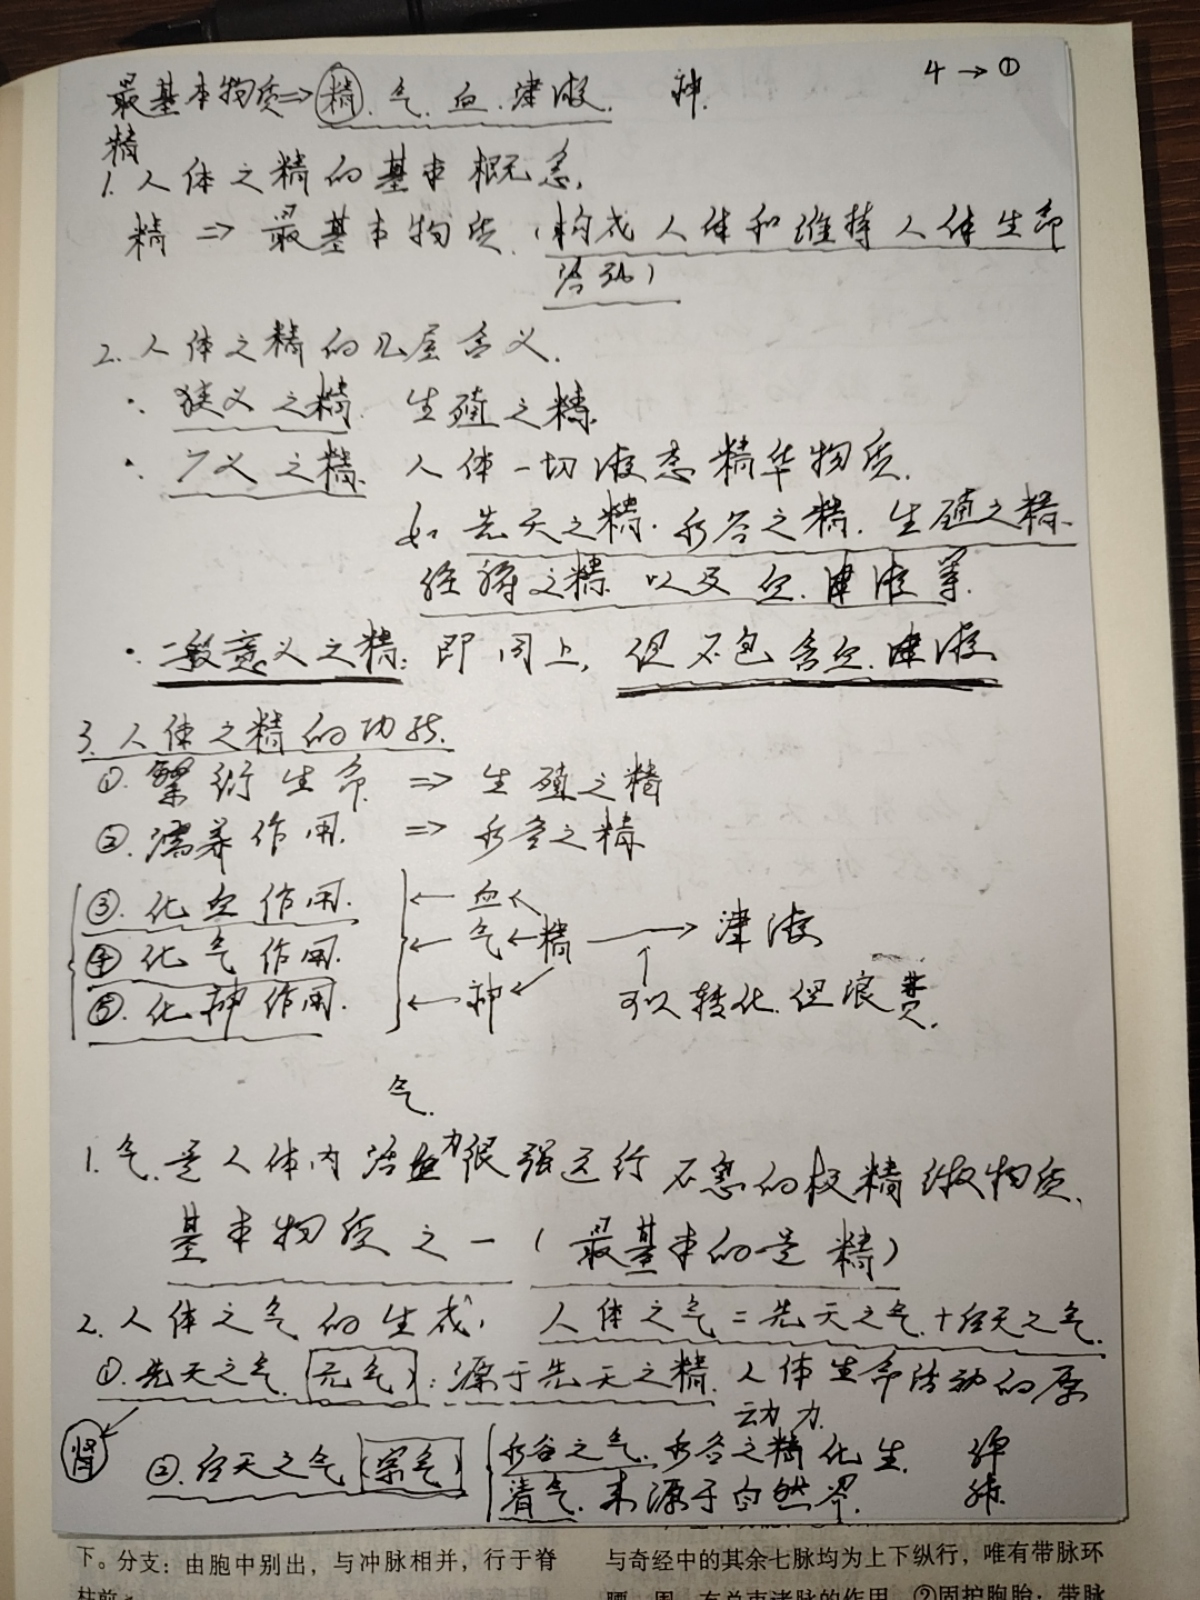 4→①
最基本物质⇒精、气、血、津液. 神.
精
1. 人体之精的基本概念.
精 ⇒ 最基本物质.(构成人体和维持人体生命
活动)
2. 人体之精的几层含义.
· 狭义之精. 生殖之精
· 广义之精. 人体一切液态精华物质.
如先天之精. 水谷之精. 生殖之精.
脏腑之精 以及血. 津液等.
· 一般意义之精: 即同上, 但不包含血. 津液
3. 人体之精的功能.
①. 繁衍生命 ⇒ 生殖之精
②. 濡养作用. ⇒ 水谷之精
③. 化血作用. ← 血 ←
④ 化气作用. ← 气 ← 精 → 津液
⑤. 化神作用. ← 神 ← ↑ 可以转化. 但浪费.
气.
1. 气. 是人体内活力很强运行不息的极精微物质.
基本物质之一(最基本的是精)
2. 人体之气的生成: 人体之气=先天之气+后天之气.
①. 先天之气(元气): 源于先天之精. 人体生命活动的原
动力.
肾
②. 后天之气(宗气) 水谷之气. 水谷之精化生. 脾
清气. 来源于自然界. 肺.
下。分支:由胞中别出,与冲脉相并,行于脊
柱前。
与奇经中的其余七脉均为上下纵行,唯有带脉环
腰一周,有总束诸脉的作用。②固护胞胎:带脉